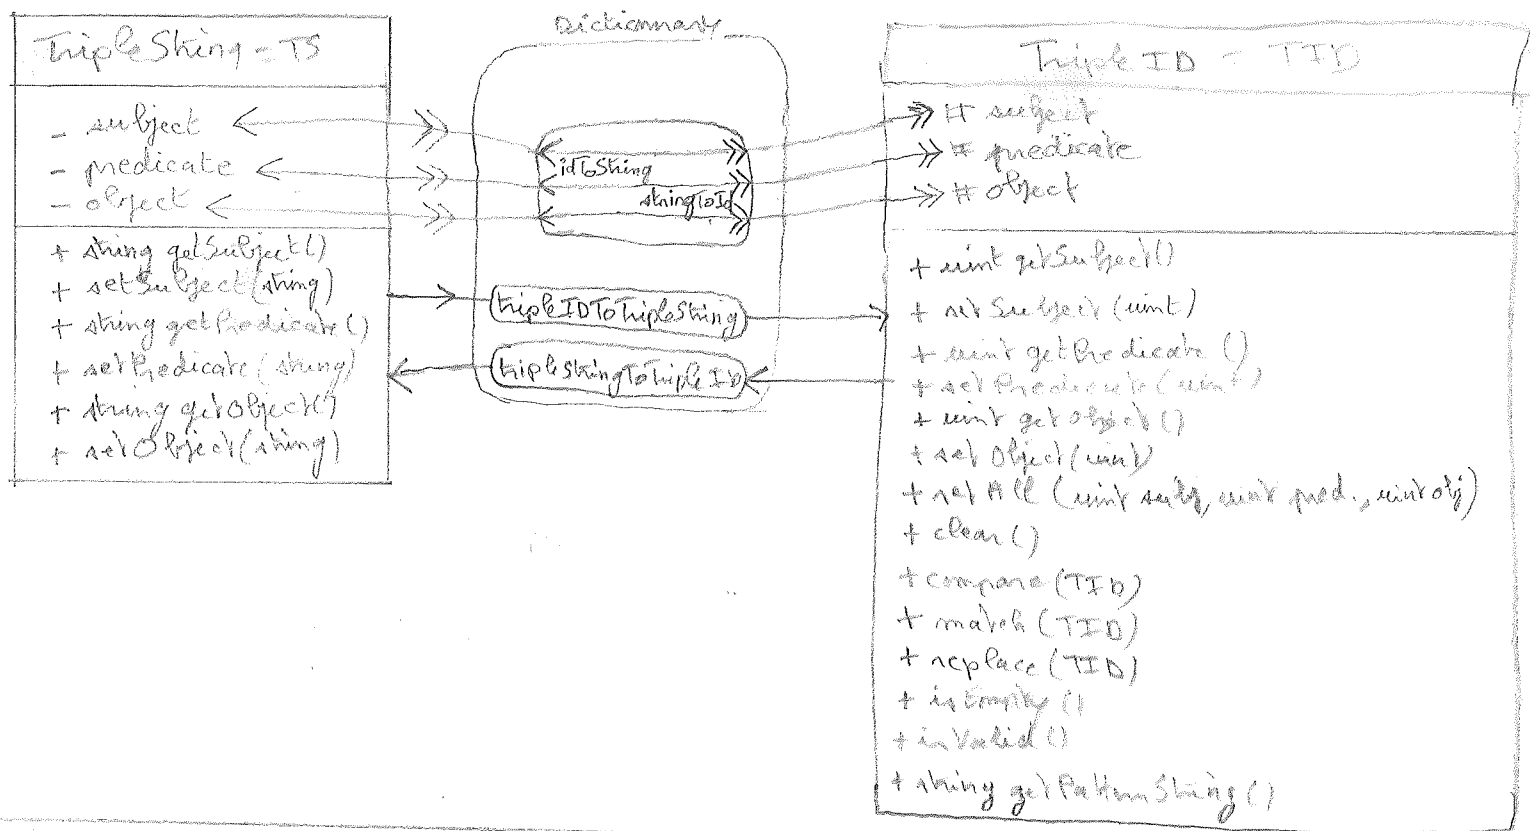 Dictionnary
TripleString = TS
- subject
- predicate
- object
+ string getSubject()
+ setSubject(string)
+ string getPredicate()
+ setPredicate(string)
+ string getObject()
+ setObject(string)
idToString
stringToId
tripleIDToTripleString
tripleStringToTripleID
TripleID = TID
# subject
# predicate
# object
+ uint getSubject()
+ setSubject(uint)
+ uint getPredicate()
+ setPredicate(uint)
+ uint getObject()
+ setObject(uint)
+ setAll (uint subj, uint pred., uint obj)
+ clear()
+ compare(TID)
+ match(TID)
+ replace(TID)
+ isEmpty()
+ isValid()
+ string getPatternString()